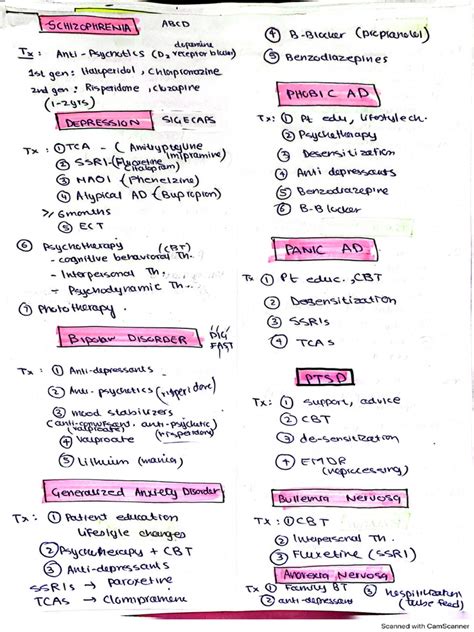 SCHIZOPHRENIA ABCD
Tx: Anti-Psychotics (D2 dopamine receptor blocker)
1st gen: Haliperidol, Chlorpromazine
2nd gen: Risperidone, clozapine
(1-2yrs)
DEPRESSION SIGECAPS
Tx: ① TCA - (Amitryptyline
imipramine)
② SSRI - (Fluoxetine
citalopram)
③ MAOI (Phenelzine)
④ Atypical AD (Bupropion)
≥ 6 months
⑤ ECT
⑥ Psychotherapy (CBT)
- cognitive behavioral Th.
- Interpersonal Th.
- Psychodynamic Th.
⑦ Phototherapy.
BIPOLAR DISORDER DIG FAST
Tx: ① Anti-depressants
② Anti-psychotics (risperidone)
③ mood stabilizers
(anti-convulsant, anti-psychotic)
(valproate) (risperidone)
④ Valproate
⑤ Lithium (mania)
Generalized Anxiety Disorder
Tx: ① Patient education
Lifestyle changes
② Psychotherapy + CBT
③ Anti-depressants
SSRIs → Paroxetine
TCAs → Clomipramine
④ B-Blocker (propranolol)
⑤ Benzodiazepines
PHOBIC AD
Tx: ① Pt edu, lifestyle ch.
② Psychotherapy
③ Desensitization
④ Anti depressants
⑤ Benzodiazepine
⑥ B-Blocker
PANIC AD
Tx ① Pt educ., CBT
② Desensitization
③ SSRIs
④ TCAs
PTSD
Tx: ① support, advice
② CBT
③ de-sensilization
④ EMDR
(reprocessing)
Bullemia Nervosa
Tx: ① CBT
② Interpersonal Th.
③ Fluxetine (SSRI)
Anorexia Nervosa
Tx ① Family BT
② anti-depressant
③ (tube feed)
Scanned with CamScanner